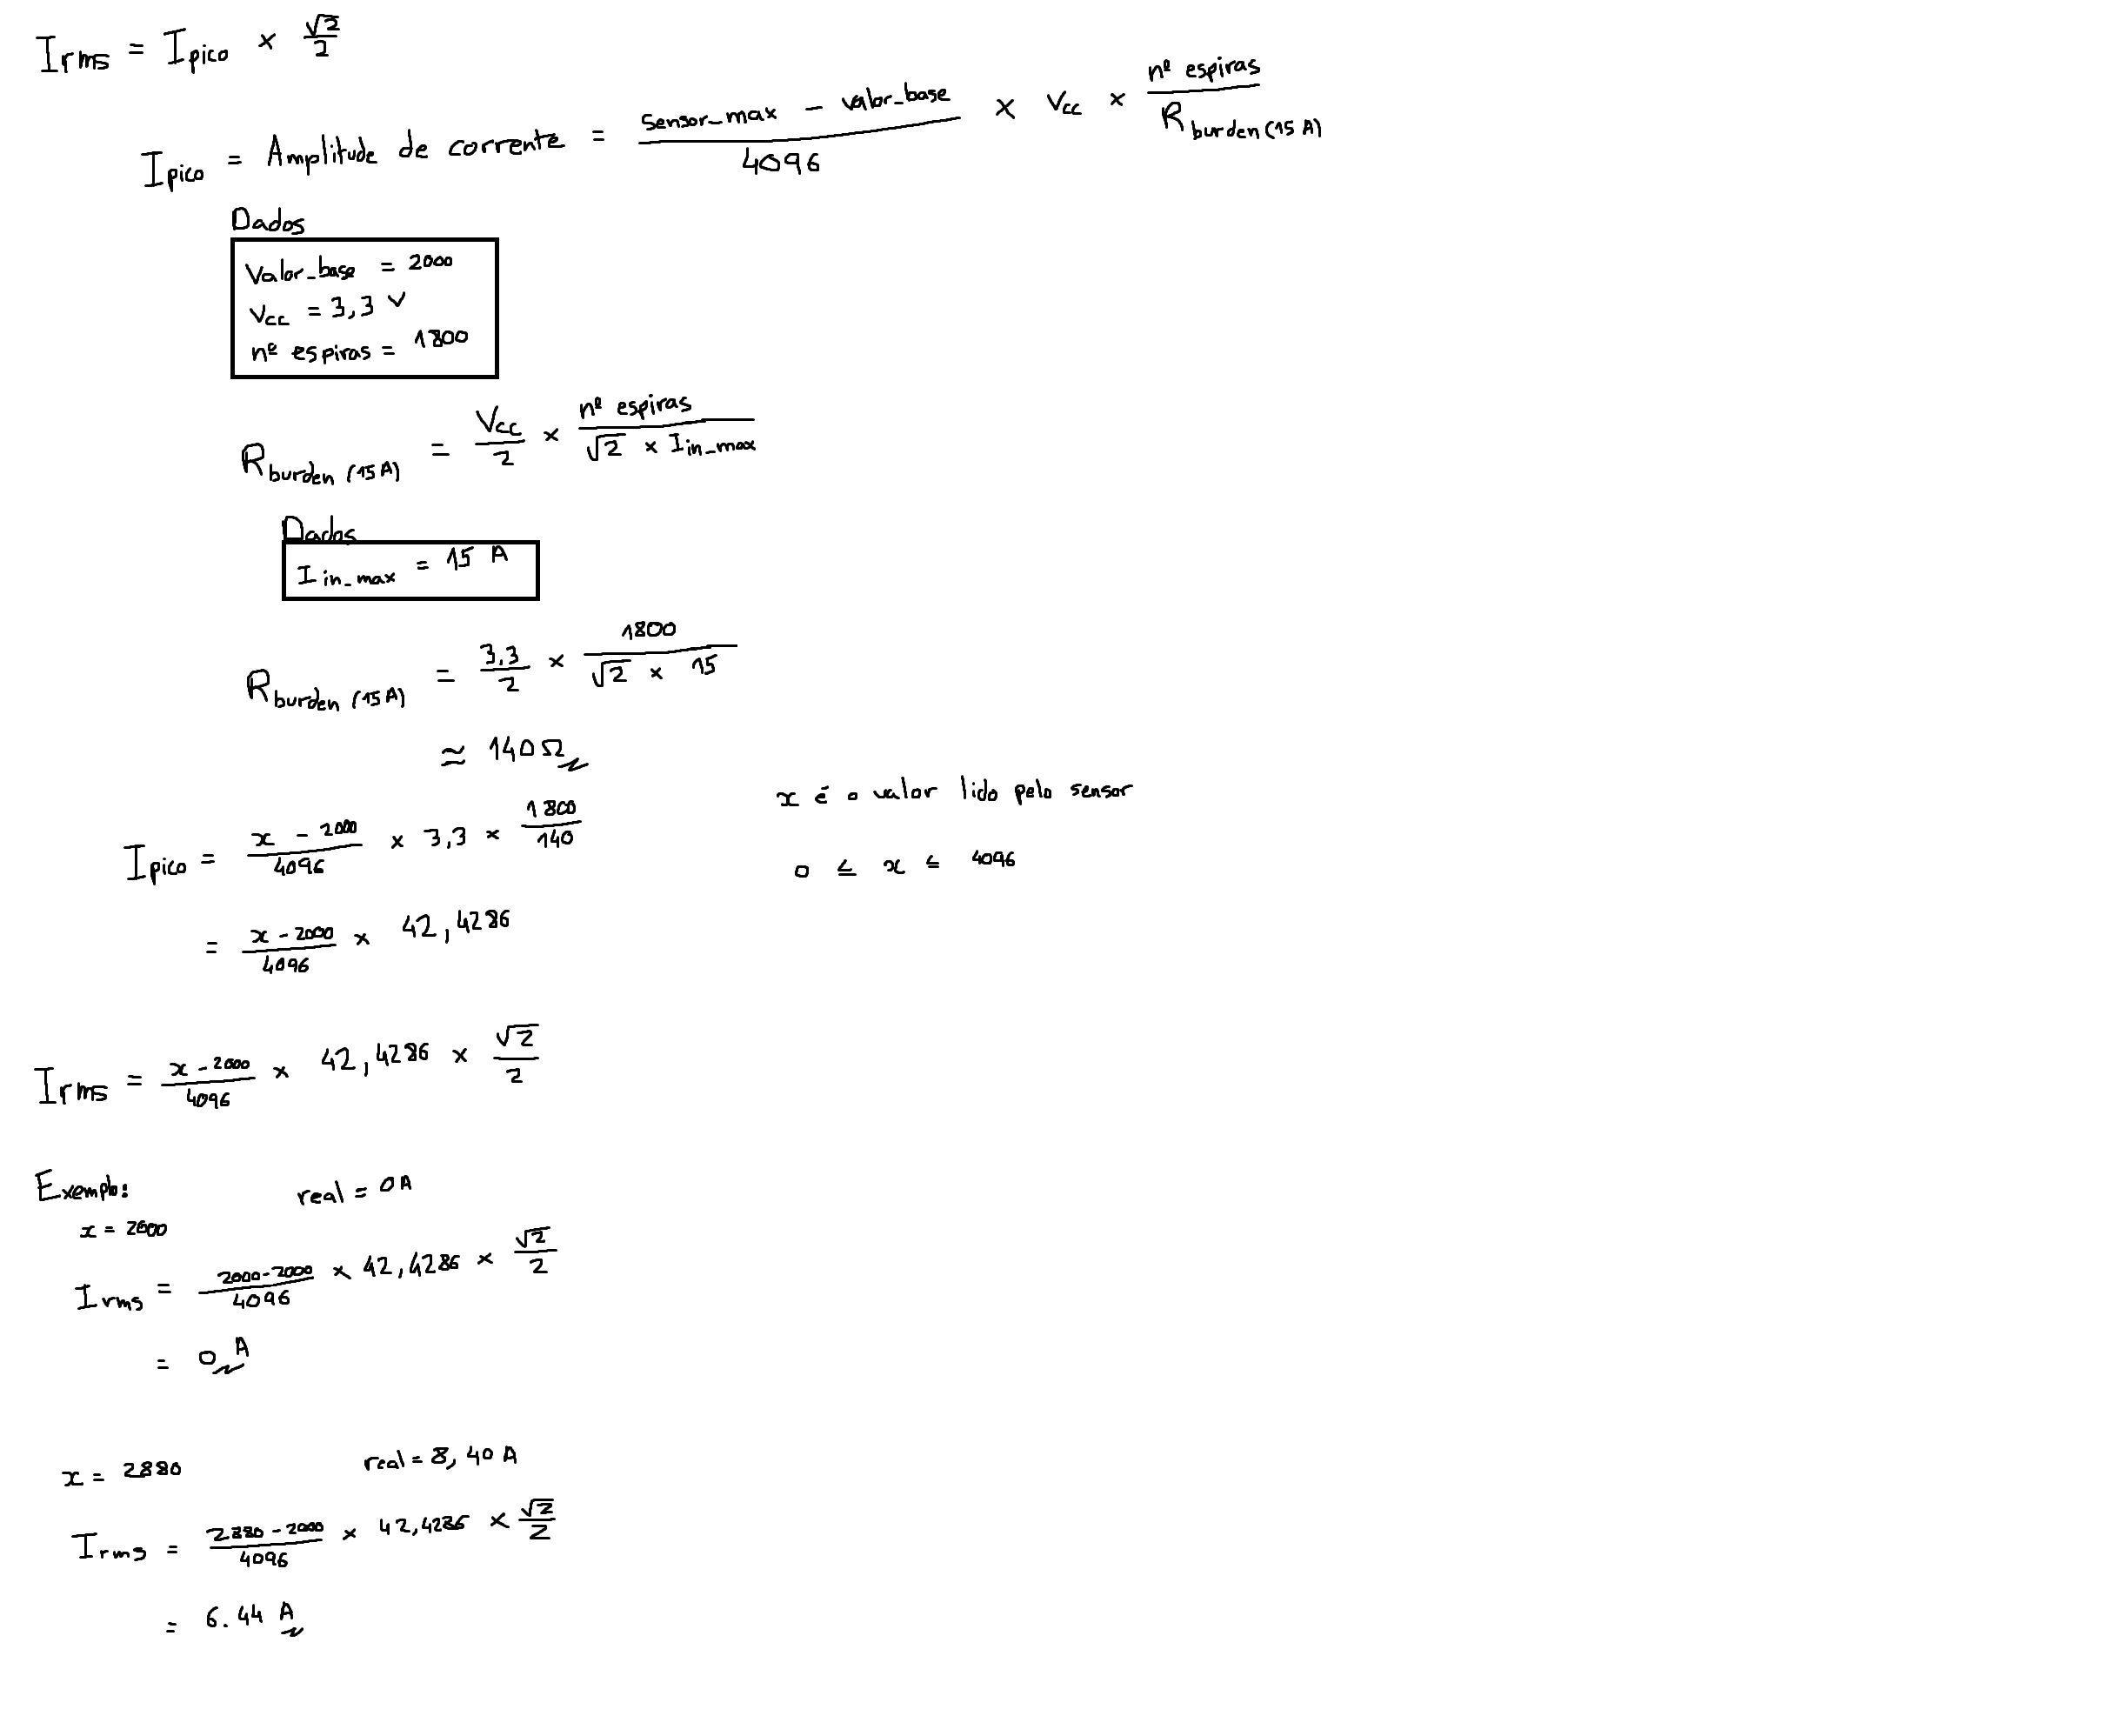 Irms = Ipico × √2/2
Ipico = Amplitude de corrente = (Sensor_max - valor_base)/4096 × Vcc × nº espiras/R burden (15 A)
Dados
Valor_base = 2000
Vcc = 3,3 V
nº espiras = 1800
R burden (15 A) = Vcc/2 × nº espiras/(√2 × I in_max)
Dados
I in_max = 15 A
R burden (15 A) = 3,3/2 × 1800/(√2 × 15)
≈ 140 Ω
x é o valor lido pelo sensor
Ipico = (x - 2000)/4096 × 3,3 × 1800/140
0 ≤ x ≤ 4096
= (x - 2000)/4096 × 42,4286
Irms = (x - 2000)/4096 × 42,4286 × √2/2
Exemplo: real = 0 A
x = 2000
Irms = (2000 - 2000)/4096 × 42,4286 × √2/2
= 0 A
x = 2880 real = 8,40 A
Irms = (2880 - 2000)/4096 × 42,4286 × √2/2
= 6.44 A